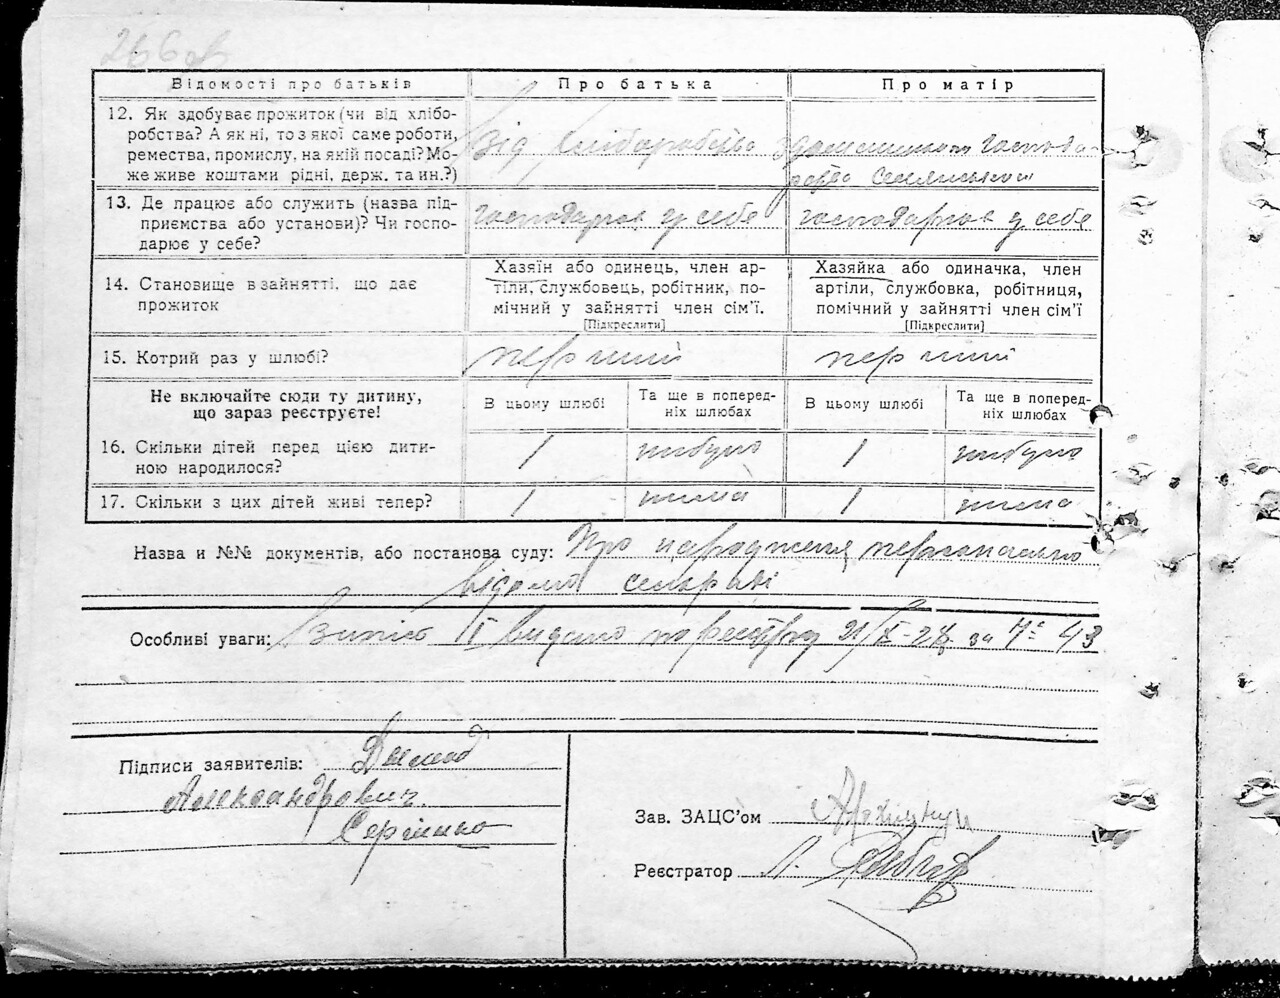 266 зв
Відомості про батьків Про батька Про матір
12. Як здобуває прожиток (чи від хлібо-
робства? А як ні, то з якої саме роботи,
ремества, промислу, на якій посаді? Мо-
же живе коштами рідні, держ. та ин.?)
Від хліборобства
з домашнього господа-
рства
13. Де працює або служить (назва під-
приємства або установи)? Чи госпо-
дарює у себе?
господарює у себе господарює у себе
14. Становище в зайнятті, що дає
прожиток
Хазяїн або одинець, член ар-
тіли, службовець, робітник, по-
мічний у зайнятті член сім'ї.
[Підкреслити]
Хазяйка або одиначка, член
артіли, службовка, робітниця,
помічний у зайнятті член сім'ї
[Підкреслити]
15. Котрий раз у шлюбі? перший перший
Не включайте сюди ту дитину,
що зараз реєструєте!
В цьому шлюбі
Та ще в поперед-
ніх шлюбах
В цьому шлюбі
Та ще в поперед-
ніх шлюбах
16. Скільки дітей перед цією дити-
ною народилося?
1 небуло 1 небуло
17. Скільки з цих дітей живі тепер? 1 нема 1 нема
Назва и №№ документів, або постанова суду: Про народження персонально
відомо сельраді
Особливі уваги: Запис II видано по реєстру 21/X-28 за № 43
Підписи заявителів:
Александрович
Зав. ЗАЦС'ом
Реєстратор